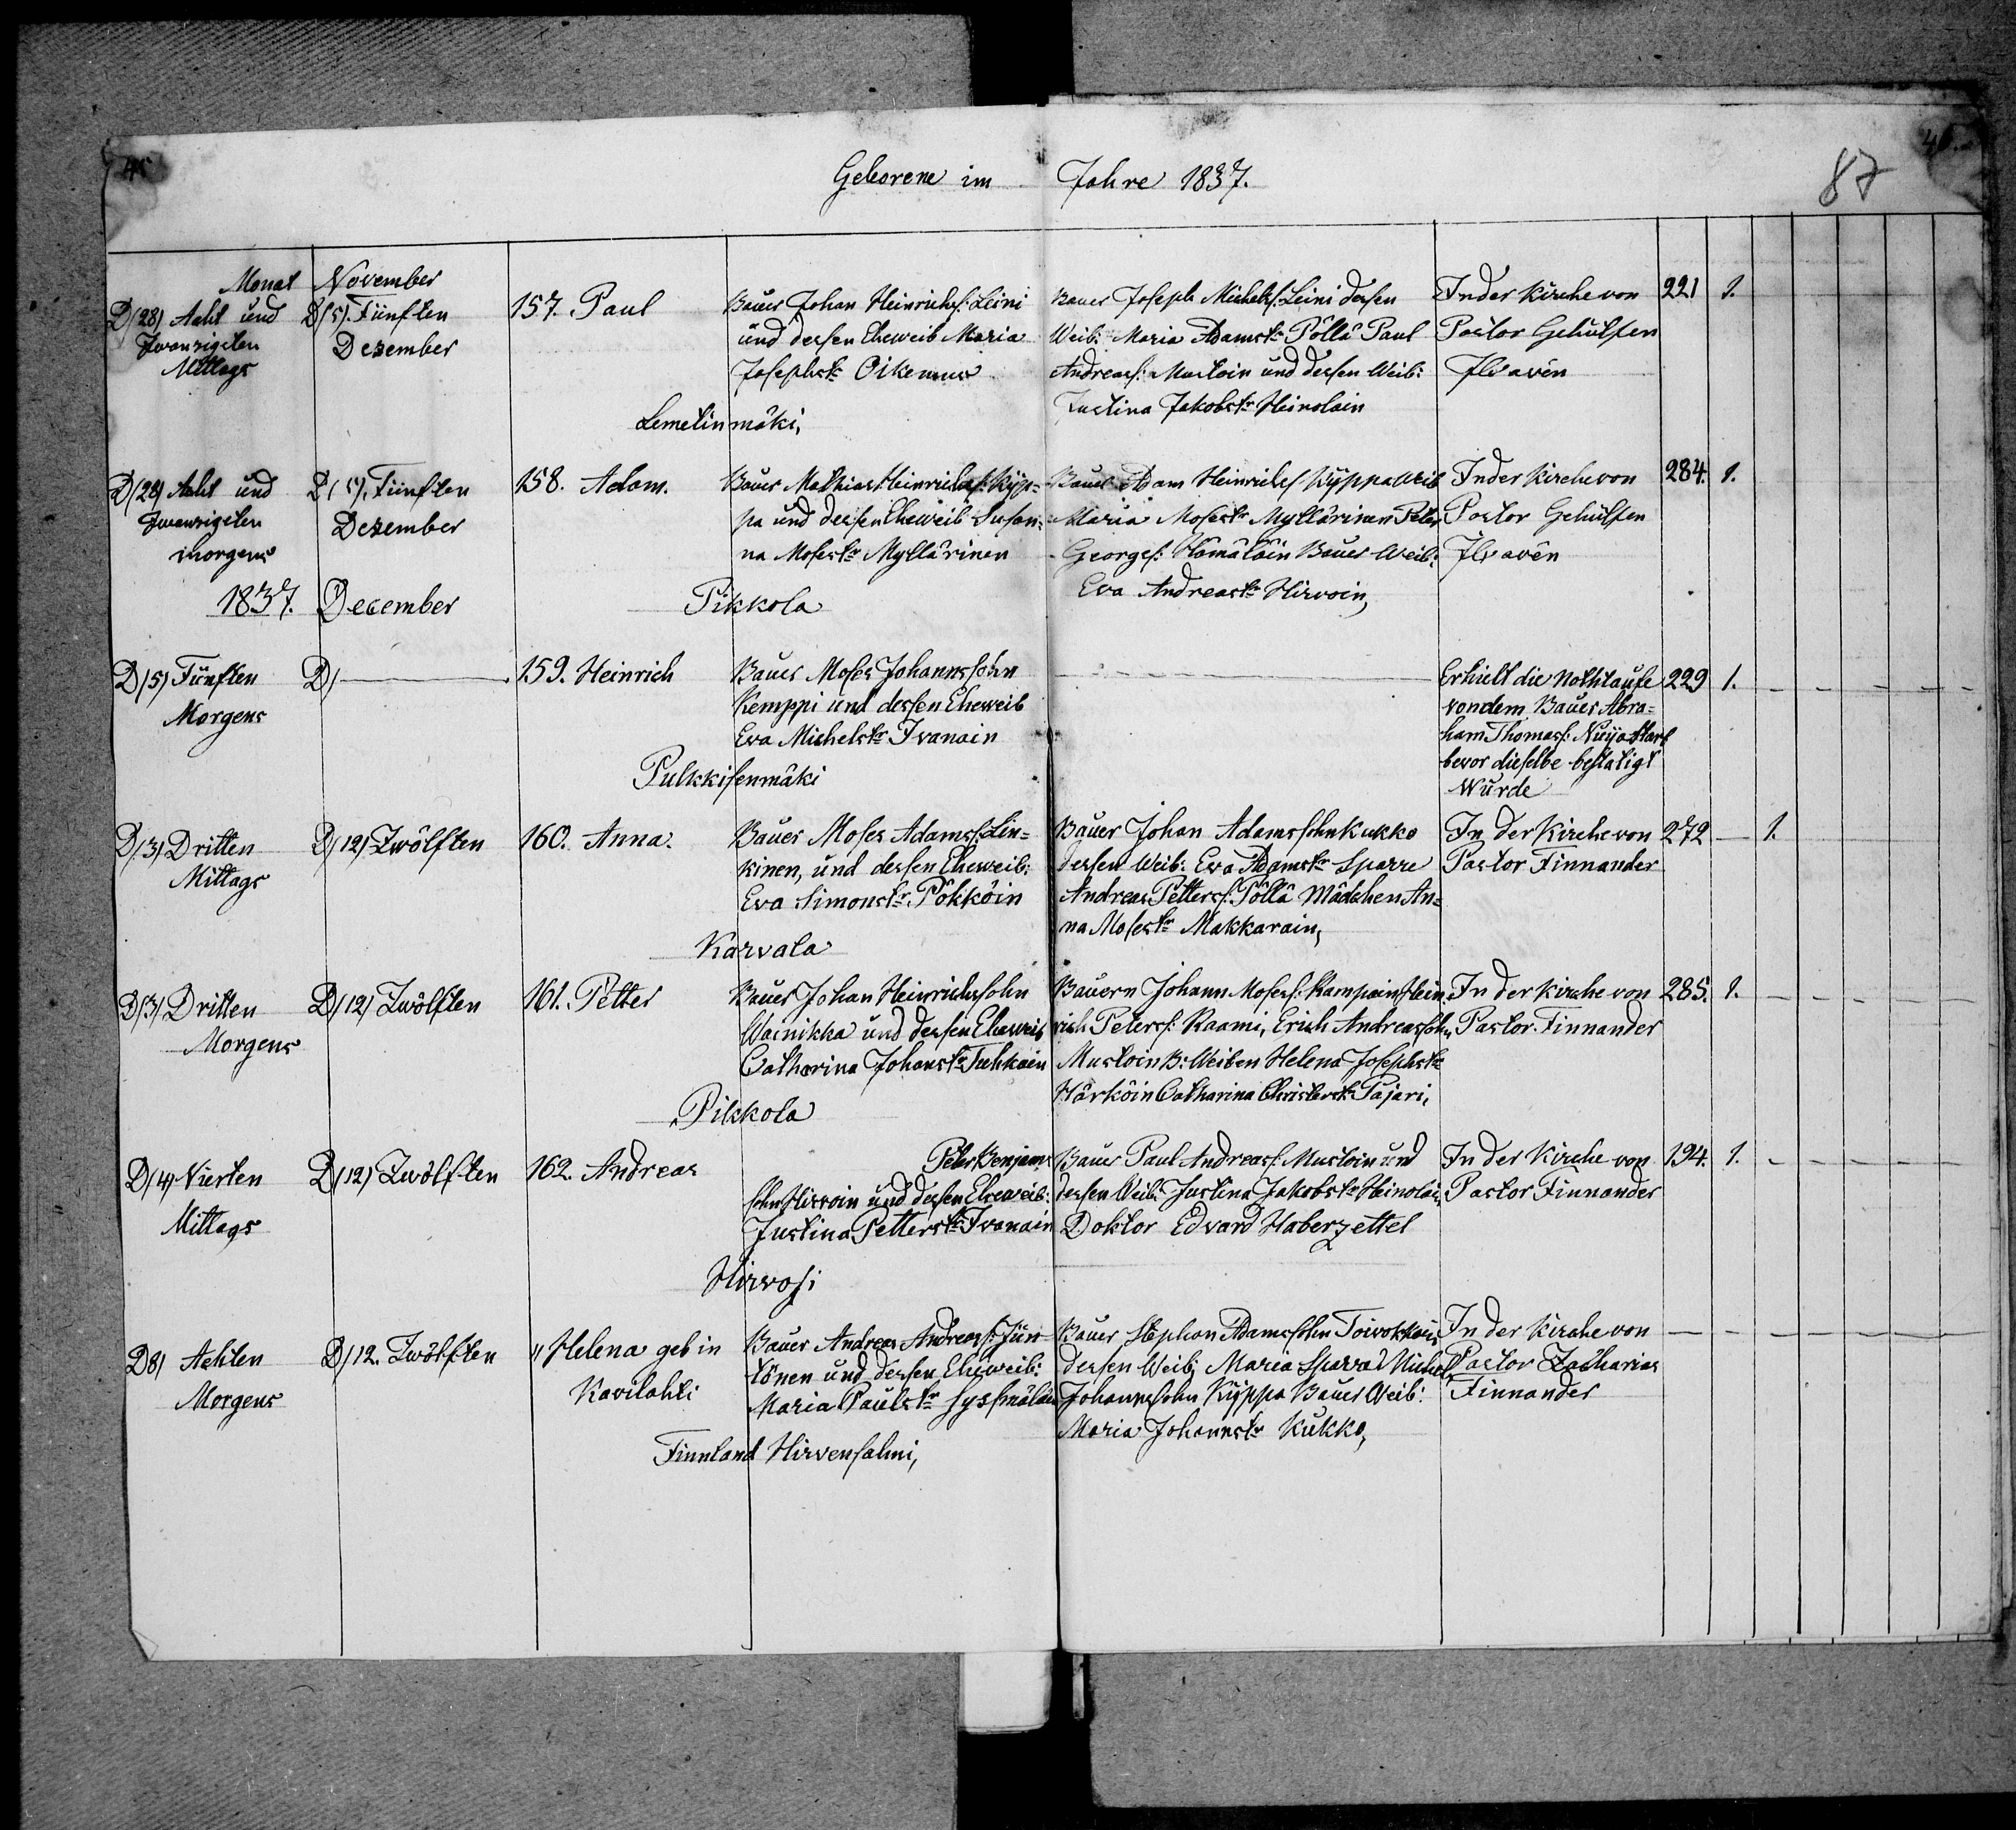 45
46.
87
Geborene im Jahre 1837.
Monat November
D/28/ Acht und
Zwanzigsten
Mittags
D/5/. Fünften
Dezember
157. Paul
Bauer Johan Heinrichs: Leini
und dessen Eheweib Maria
Josephstr Oikemus
Lemetinmäki,
Bauer Joseph Michels: Leini dessen
Weib: Maria Adamstr Pöllä Paul
Andreas: Mustoin und dessen Weib:
Justina Jakobstr Heinolain
In der Kirche von
Pastor Gehülfen
Ilvavén
221 1.
D/28/ Acht und
Zwanzigsten
morgens
D/5/. Fünften
Dezember
158. Adam.
Bauer Mathias Heinrichs: Kÿp=
pa und dessen Eheweib Susan=
na Mosestr Myllärinen
Pikkola
Bauer Adam Heinrichs Kÿppa Weib
Maria Mosestr Myllärinen Peter
Georges: Hämäläin Bauer Weib:
Eva Andreastr Hirvoin,
In der Kirche von
Pastor Gehülfen
Ilvavén
284. 1.
1837. December
D/5/ Fünften
Morgens
D/
159. Heinrich
Bauer Moses Johannssohn
Kemppi und dessen Eheweib
Eva Michelstr Ivanain
Pulkkisenmäki
Erhielt die Nothtaufe
von dem Bauer Abra=
ham Thomas: Nuija starb
bevor dieselbe bestätigt
Wurde
229 1.
D/3/ Dritten
Mittags
D/12/ Zwölften
160. Anna.
Bauer Moses Adamss: Lin=
kinen, und dessen Eheweib:
Eva Simonstr Pökköin
Karvala
Bauer Johan Adamssohn Kukko
dessen Weib: Eva Adamstr Sparre
Andreas Petters: Pöllä Mädchen An=
na Mosestr Makkarain,
In der Kirche von
Pastor Finnander
272 — 1.
D/3/ Dritten
Morgens
D/12/ Zwölften
161. Petter
Bauer Johan Heinrichssohn
Wainikka und dessen Eheweib
Catharina Johanstr Tuhkain
Pikkola
Bauern Johann Moses: Kampain Hein=
rich Peters: Raami, Erich Andreassohn
Mustoin B: Weiben Helena Josephstr
Härköin Catharina Christerstr Pajari,
In der Kirche von
Pastor Finnander
285. 1.
D/4/ Vierten
Mittags
D/12/ Zwölften
162. Andreas
Peter Benjams
sohn Hirvoin und dessen Eheweib:
Justina Petterstr Ivanain
Hirvosi
Bauer Paul Andreas: Mustoin und
dessen Weib: Justina Jakobstr Heinolain
Doktor Edvard Haberzettel
In der Kirche von
Pastor Finnander
194. 1.
D8/ Achten
Morgens
D/12. Zwölften
" Helena geb in
Kavilahti
Bauer Andreas Andreas: Jün=
tönen und dessen Eheweib:
Maria Paulstr Sysmäläin
Finnland Hirvensalmi,
Bauer Stephan Adamssohn Toivokkain
dessen Weib: Maria Sparra Michel
Johannssohn Kÿppa Bauer Weib:
Maria Johannstr Kukko,
In der Kirche von
Pastor Zacharias
Finnander